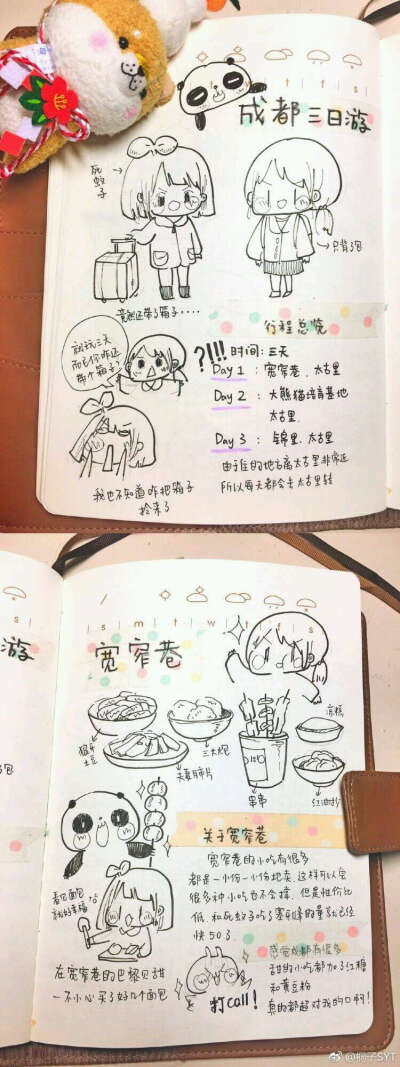 t f s
成都三日游
死
蚊
子
只背了包
竟然还带了箱子····
就玩三天
而已你咋还
带个箱子?
?!!!
行程总览
时间: 三天
Day 1 : 宽窄巷、太古里
Day 2 : 大熊猫培育基地
太古里.
Day 3 : 锦里、太古里
由于住的地方离太古里非常近
所以每天都会去太古里转
我也不知道咋把箱子
捡来了
s m t w t f s
游
宽窄巷
狼牙
土豆
三大炮
夫妻肺片
串串
凉糕
红油抄手
关于宽窄巷
宽窄巷的小吃有很多
都是一小份一小份地卖 这样可以尝
很多种小吃也不会撑. 但是性价比
低. 和死蚊子吃
快50了.
看见面包
就好幸福
在宽窄巷的巴黎贝甜
一不小心买了好几个面包
打call!
感觉成都有很多
甜的小吃都加了红糖
和黄豆粉
真的都超对我的口啊!
@杨子SYT